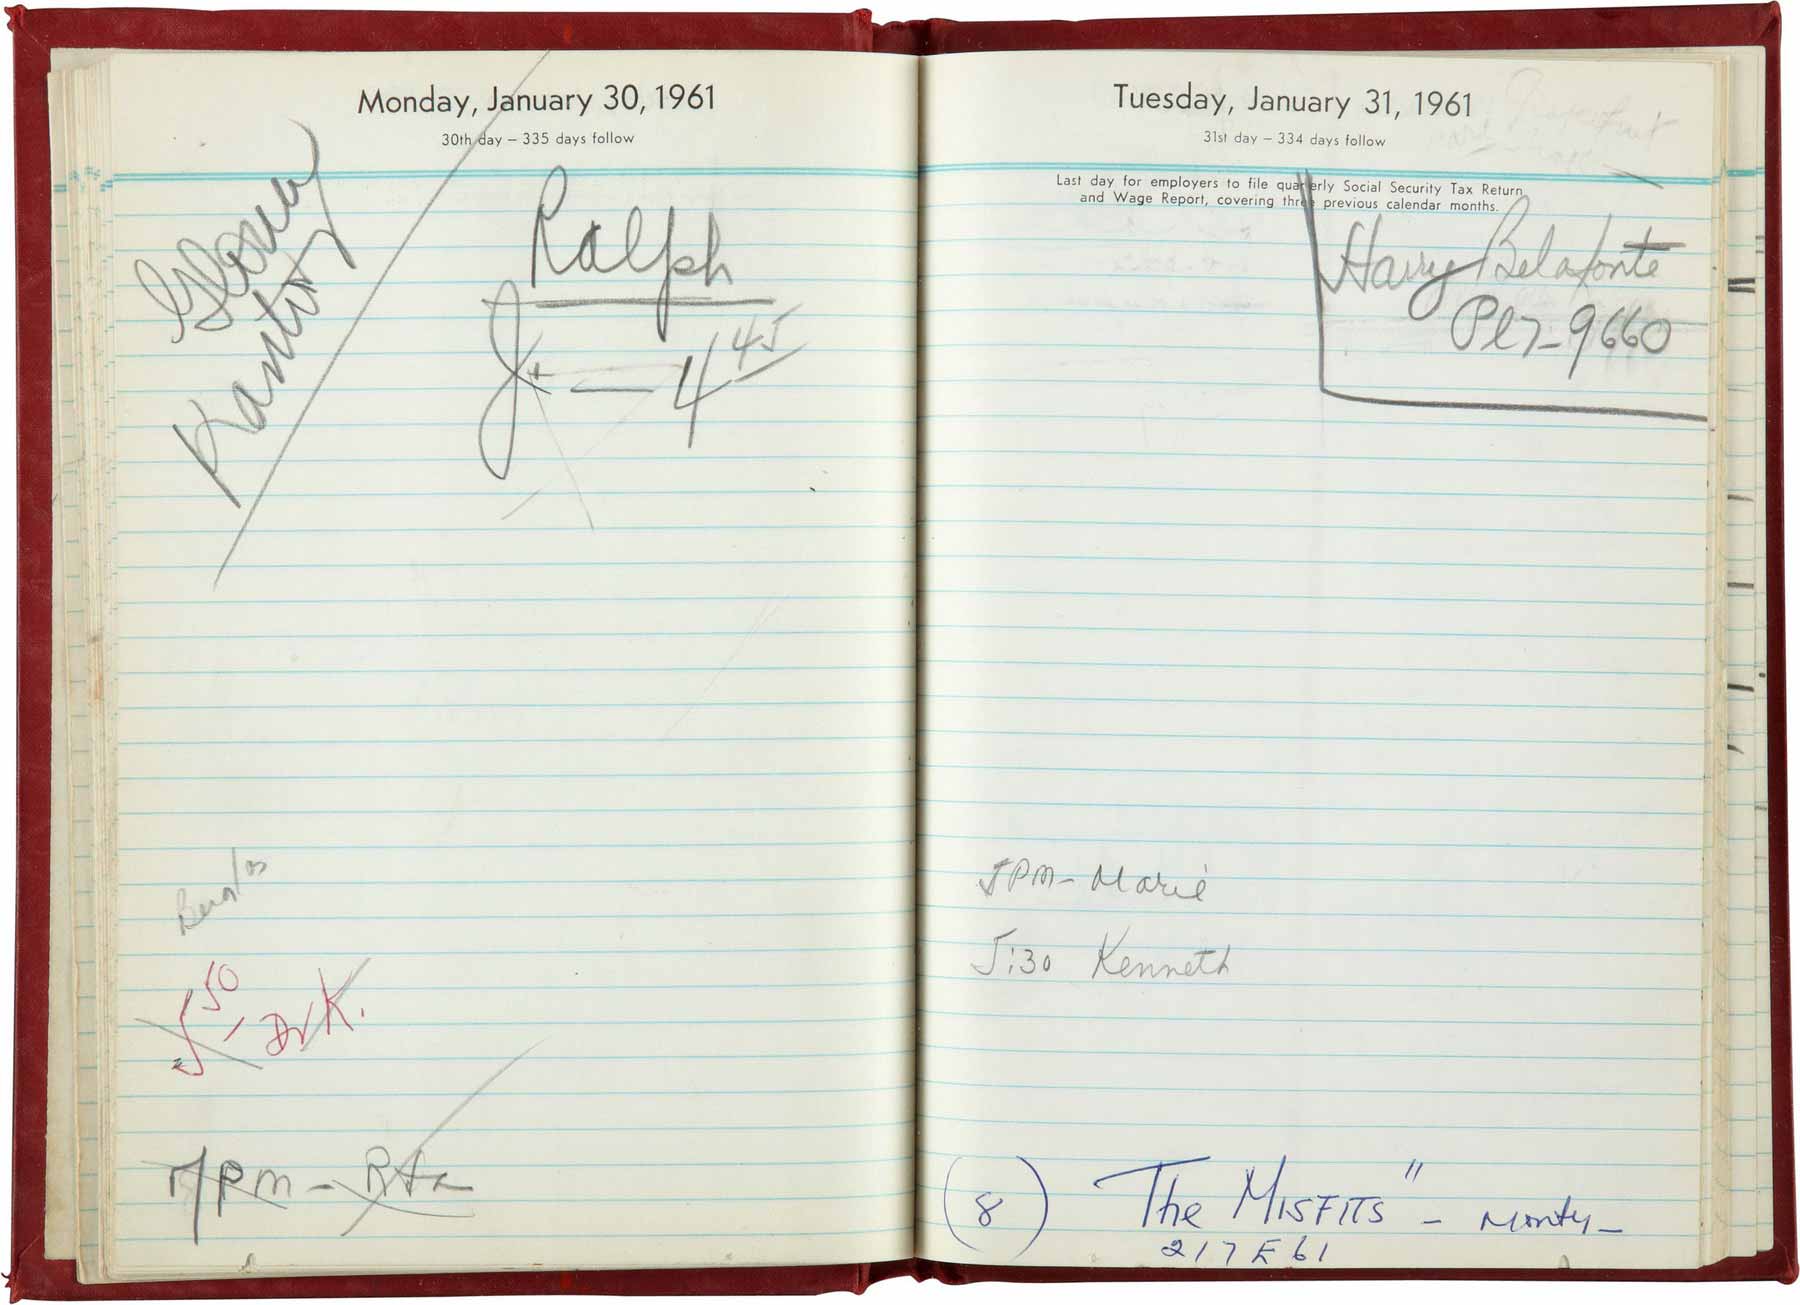 Monday, January 30, 1961
30th day – 335 days follow
Gloria
Kantor
Ralph
Jt — 4 45
5 50 – Dr K.
7 PM – Rita
Tuesday, January 31, 1961
31st day – 334 days follow
Last day for employers to file quarterly Social Security Tax Return
and Wage Report, covering three previous calendar months.
Harry Belafonte
Pl 7-9660
5 PM – Marie
5:30 Kenneth
(8) "The MISFITS" – Monty –
217 E 61